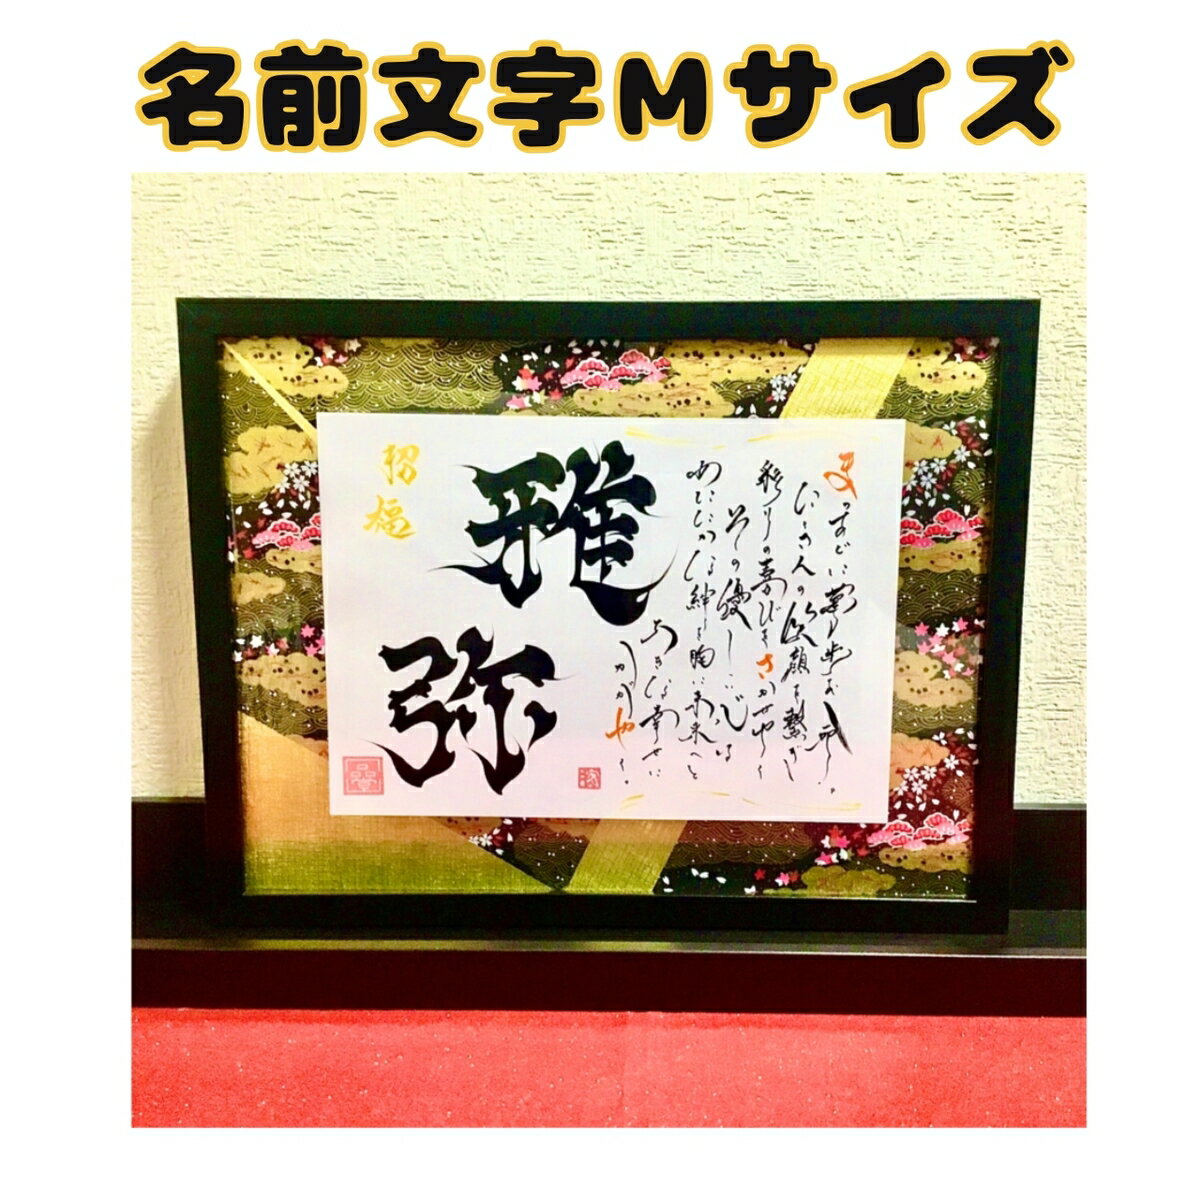 名前文字Mサイズ
まっすぐに夢に歩む
ひとの人の笑顔を繋ぎ
彩りの喜びをさかせゆく
その優しい心は
あたたかな絆を胸に未来へと
大きな幸せに
かがやく。
雅
弥
招福